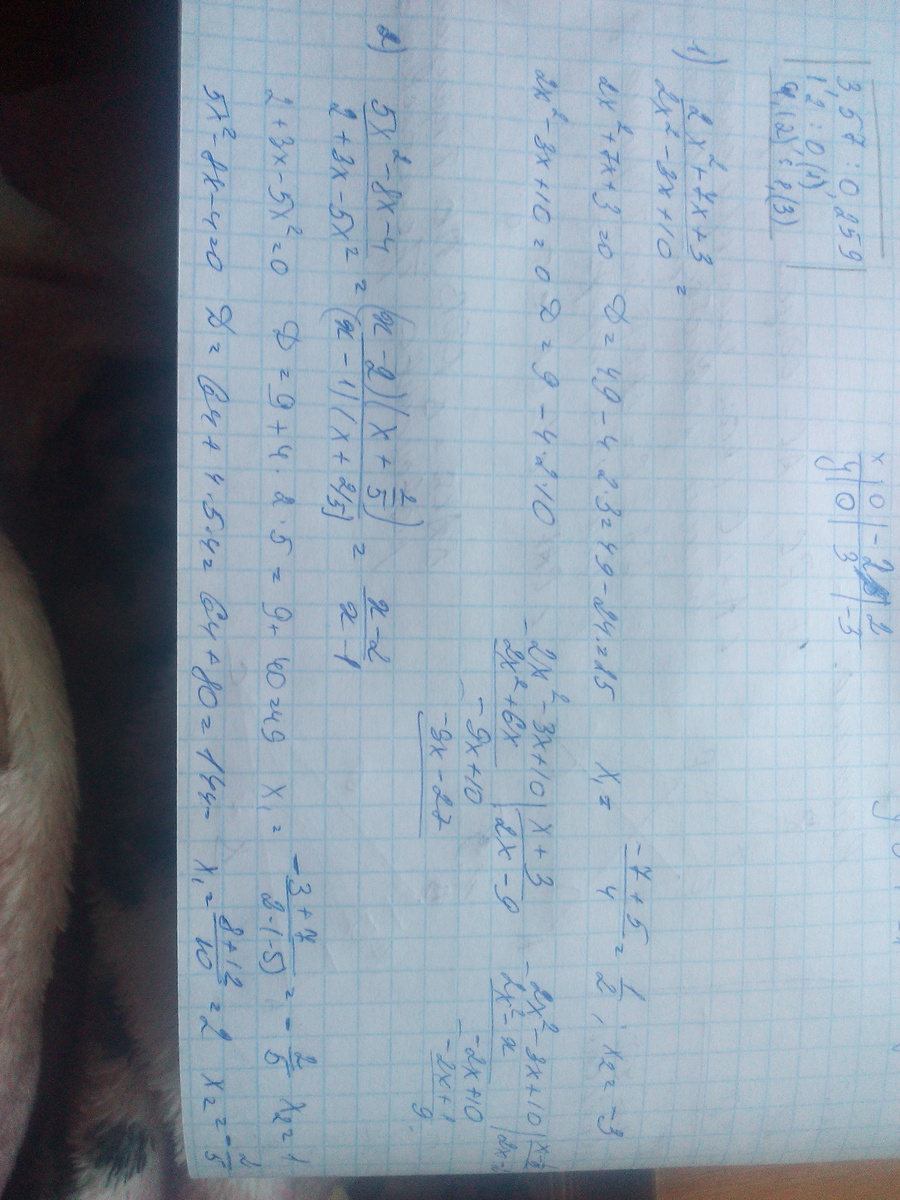 3,57 : 0,259
1,2 : 0,(1)
4,(2) : 2,(3)
x | 0 | -2 | 2
y | 0 | 3 | -3
1) (2x² + 7x + 3)/(2x² - 3x + 10) =
2x² + 7x + 3 = 0 D = 49 - 4·2·3 = 49 - 24 = 25 x₁ = (-7 + 5)/4 = 1/2, x₂ = -3
2x² - 3x + 10 = 0 D = 9 - 4·2·10
-2x² - 3x + 10 | x + 3
2x² + 6x | 2x - 9
-9x + 10
-9x - 27
-2x² - 3x + 10
2x² - x
-2x + 10
-2x + 1
9.
2) (5x² - 8x - 4)/(2 + 3x - 5x²) = ((x - 2)(x + 2/5))/((x - 1)(x + 2/5)) = (x - 2)/(x - 1)
2 + 3x - 5x² = 0 D = 9 + 4·2·5 = 9 + 40 = 49 x₁ = (-3 + 7)/(2·(-5)) = -2/5 x₂ = 1
5x² - 8x - 4 = 0 D = 64 + 4·5·4 = 64 + 80 = 144 x₁ = (8 + 12)/10 = 2 x₂ = -2/5